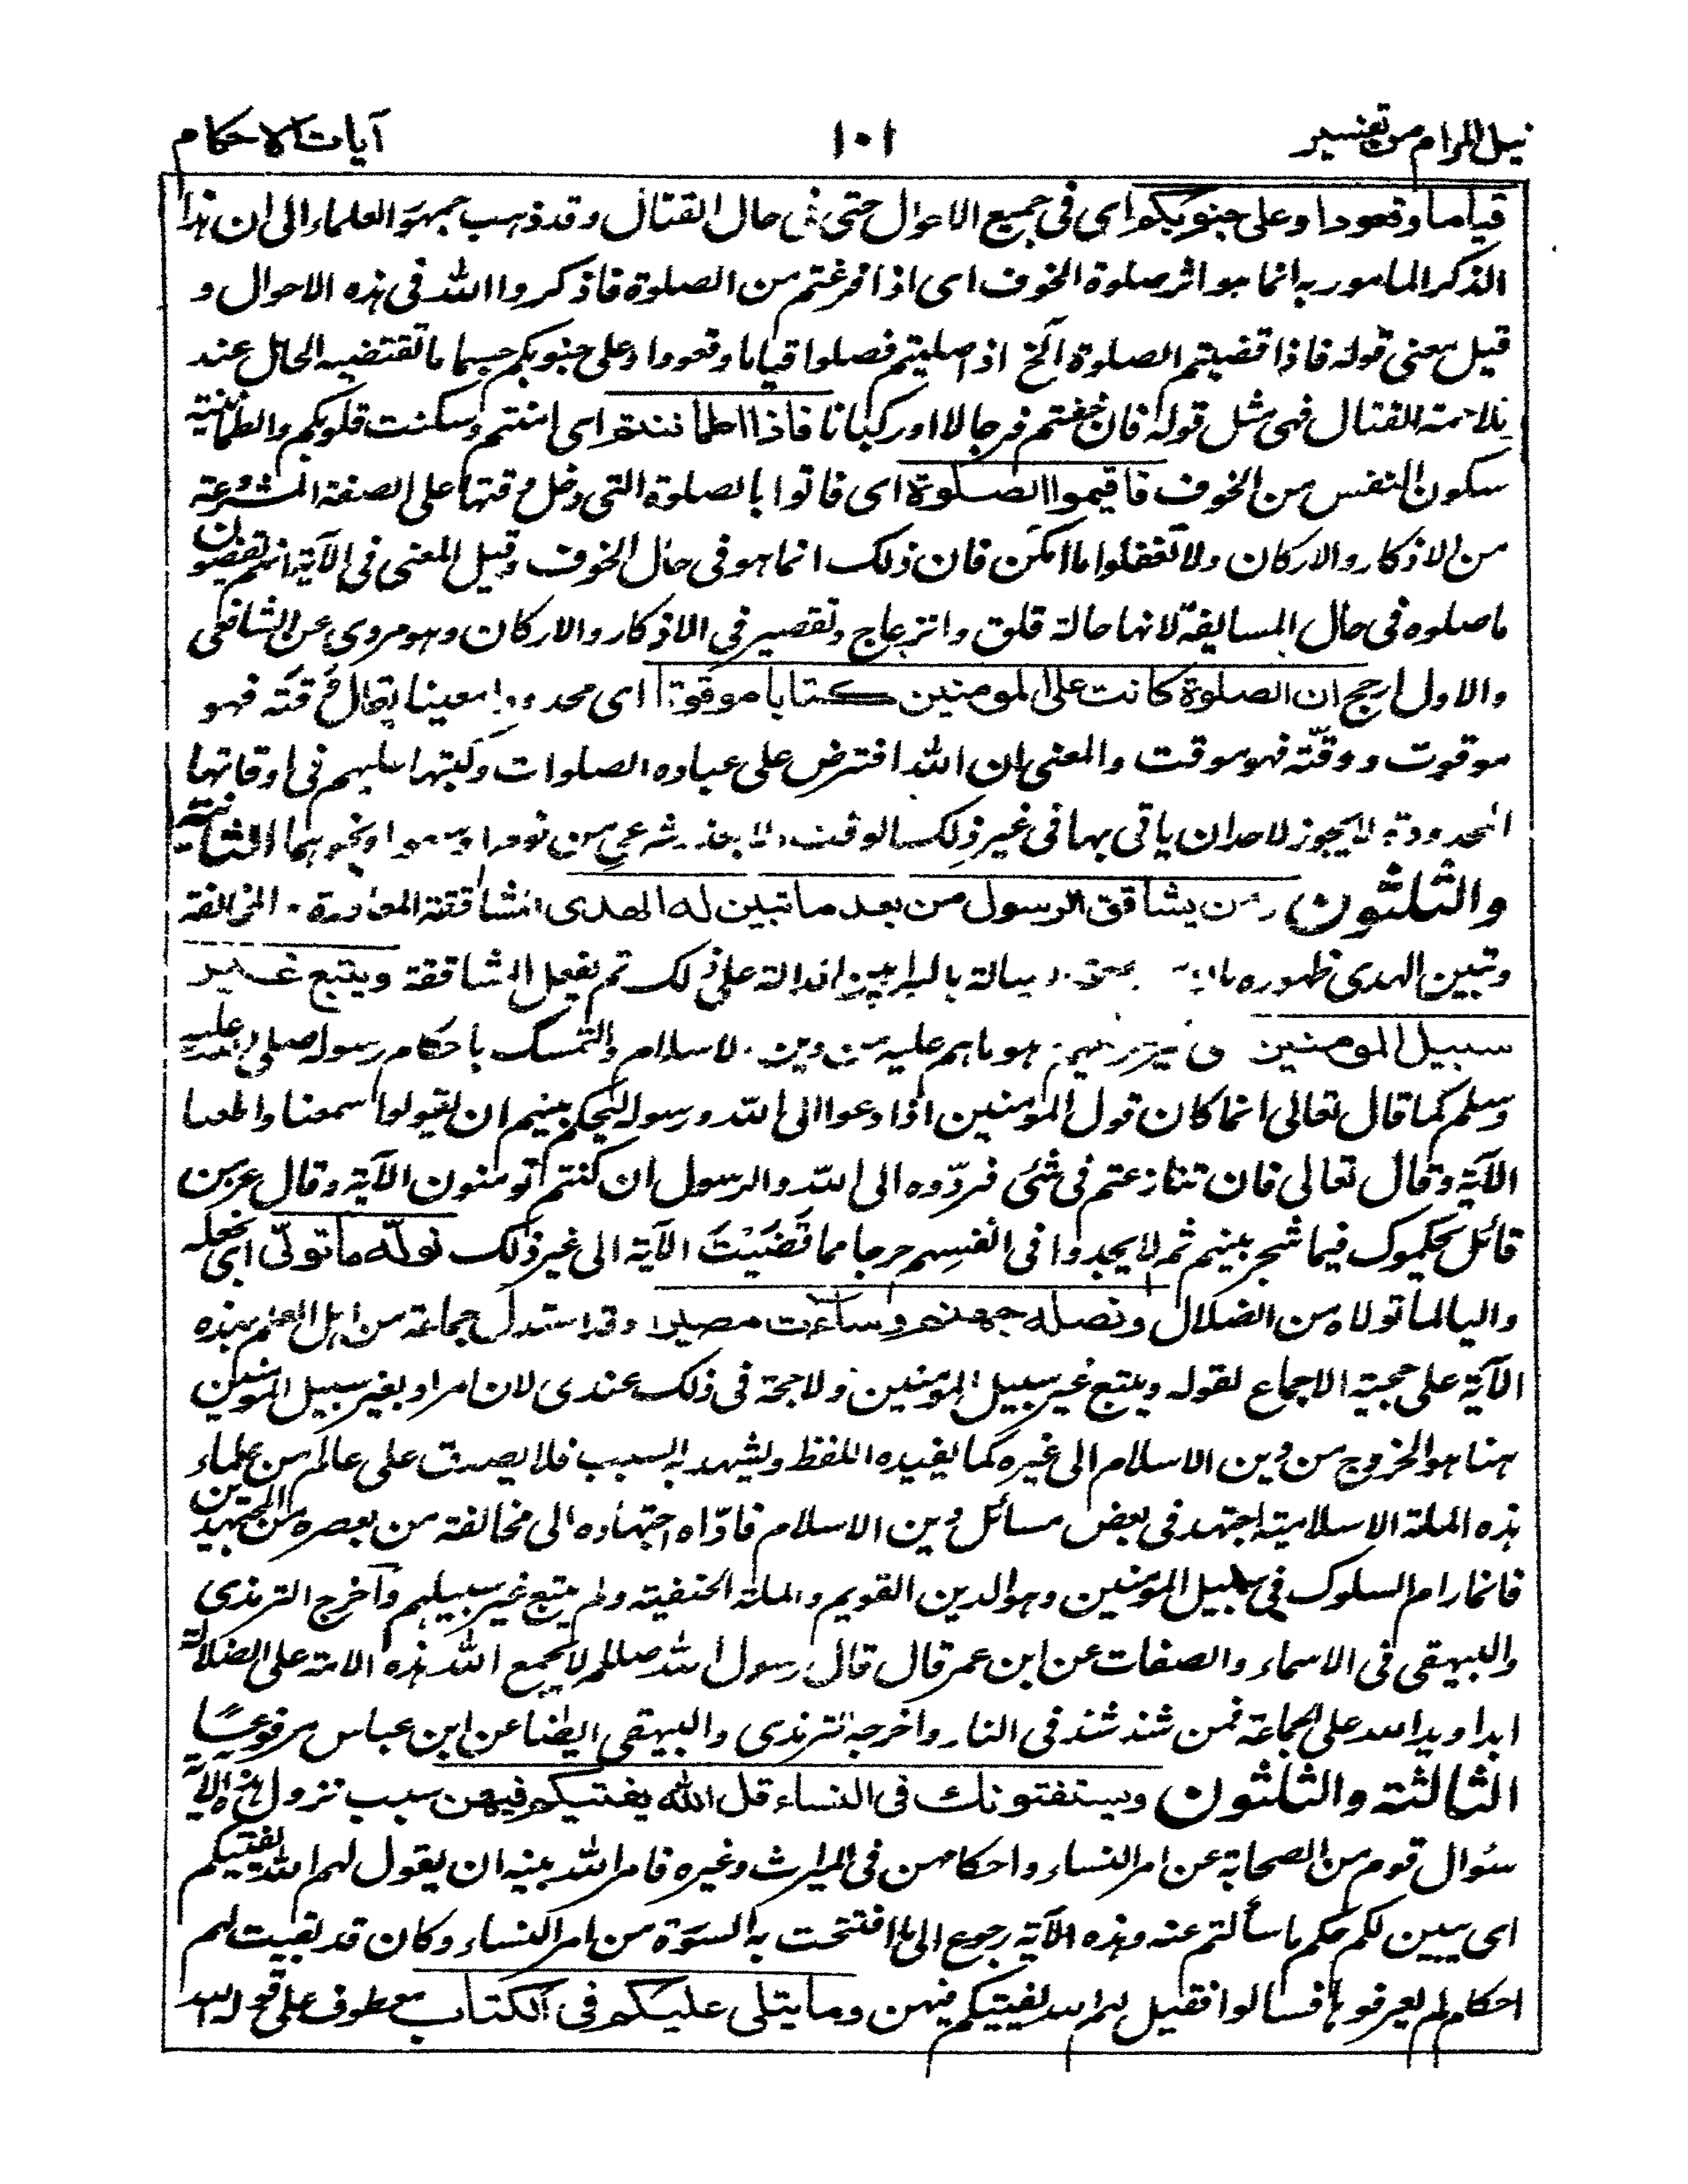 نيل المرام من تفسير
١٠١
آيات الاحكام
قياما وقعودا وعلى جنوبكم اى فى جميع الاحوال حتى فى حال القتال وقد ذهب جمهور العلماء الى ان هذا
الذكر المامور به انما هو اثر صلوة الخوف اى اذا فرغتم من الصلوة فاذكروا الله فى هذه الاحوال و
قيل معنى قوله فاذا قضيتم الصلوة الخ اذا صليتم فصلوا قياما وقعودا وعلى جنوبكم حسبما تقتضيه الحال عند
ملاحمة القتال فهى مثل قوله فان خفتم فرجالا او ركبانا فاذا اطمأننتم اى امنتم وسكنت قلوبكم والطمأنينة
سكون النفس من الخوف فاقيموا الصلوة اى فاتوا بالصلوة التى دخل وقتها على الصفة المشروعة
من الاذكار والاركان ولا تغفلوا ما امكن فان ذلك انما هو فى حال الخوف وقيل المعنى فى الآية انهم يقضون
ما صلوه فى حال المسايفة لانها حالة قلق وانزعاج وتقصير فى الاذكار والاركان وهو مروى عن الشافعى
والاول ارجح ان الصلوة كانت على المومنين كتابا موقوتا اى محدودا معينا يقال وقته فهو
موقوت ووقّته فهو موقت والمعنى ان الله افترض على عباده الصلوات وكتبها عليهم فى اوقاتها
المحدودة لا يجوز لاحد ان ياتى بها فى غير ذلك الوقت الا بعذر شرعى من نوم او سهو او نحوهما الثانية
والثلثون ومن يشاقق الرسول من بعد ما تبين له الهدى المشاققة المعاداة والمخالفة
وتبين الهدى ظهوره الرسالة بالبراهين الدالة على ذلك ثم يفعل المشاققة ويتبع غير
سبيل المومنين اى غير طريقهم هو ما هم عليه من دين الاسلام والتمسك باحكام رسوله صلى الله عليه
وسلم كما قال تعالى انما كان قول المؤمنين اذا دعوا الى الله ورسوله ليحكم بينهم ان يقولوا سمعنا واطعنا
الآية وقال تعالى فان تنازعتم فى شئ فردّوه الى الله والرسول ان كنتم تومنون الآية وقال عز من
قائل يحكموك فيما شجر بينهم ثم لا يجدوا فى انفسهم حرجا مما قَضَيْتَ الآية الى غير ذلك نولّه ما تولّى اى نجعله
واليا لما تولاه من الضلال ونصله جهنم وساءت مصيرا وقد استدل جماعة من اهل العلم بهذه
الآية على حجية الاجماع لقوله ويتبع غير سبيل المؤمنين ولا حجة فى ذلك عندى لان المراد بغير سبيل المؤمنين
هنا هو الخروج من دين الاسلام الى غيره كما يفيده اللفظ ويشهد به السبب فلا يصدق على عالم من علماء
هذه الملة الاسلامية اجتهد فى بعض مسائل دين الاسلام فادّاه اجتهاده الى مخالفة من بعصره من المجتهدين
فانما رام السلوك فى سبيل المؤمنين وهو الدين القويم والملة الحنفية ولم يتبع غير سبيلهم واخرج الترمذى
والبيهقى فى الاسماء والصفات عن ابن عمر قال قال رسول الله صللم لا يجمع الله هذه الامة على الضلالة
ابدا ويد الله على الجماعة فمن شذ شذ فى النار واخرجه الترمذى والبيهقى ايضا عن ابن عباس مرفوعًا
الثالثة والثلثون ويستفتونك فى النساء قل الله يفتيكم فيهن سبب نزول هذه الآية
سؤال قوم من الصحابة عن امر النساء واحكامهن فى الميراث وغيره فامر الله نبيه ان يقول لهم الله يفتيكم
اى يبين لكم حكم ما سألتم عنه وهذه الآية رجوع الى ما افتتحت به السورة من امر النساء وكان قد بقيت لهم
احكام لم يعرفوها فسالوا فقيل لهم الله يفتيكم فيهن وما يتلى عليكم فى الكتاب معطوف على قوله الله